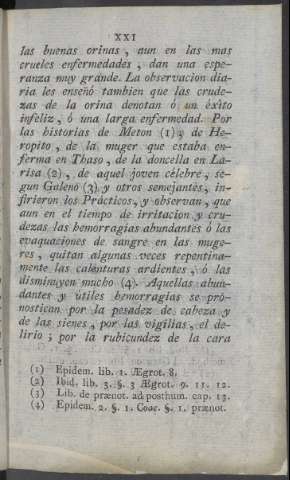 XXI
las buenas orinas, aun en las mas
crueles enfermedades, dan una espe-
ranza muy grande. La observacion dia-
ria les enseñó tambien que las crude-
zas de la orina denotan ó un éxito
infeliz, ó una larga enfermedad. Por
las historias de Meton (1) y de He-
ropito, de la muger que estaba en-
ferma en Thaso, de la doncella en La-
risa (2), de aquel joven célebre, se-
gun Galeno (3) y otros semejantes, in-
firieron los Prácticos, y observan, que
aun en el tiempo de irritacion y cru-
dezas las hemorragias abundantes ó las
evaquaciones de sangre en las muge-
res, quitan algunas veces repentina-
mente las calenturas ardientes, ó las
disminuyen mucho (4). Aquellas abun-
dantes y útiles hemorragias se pro-
nostican por la pesadez de cabeza y
de las sienes, por las vigilias, el de-
lirio; por la rubicundez de la cara
(1) Epidem. lib. 1. Ægrot. 8.
(2) Ibid. lib. 3. §. 3 Ægrot. 9. 11. 12.
(3) Lib. de prænot. ad posthum. cap. 13.
(4) Epidem. 2. §. 1. Coac. §. 1. prænot.